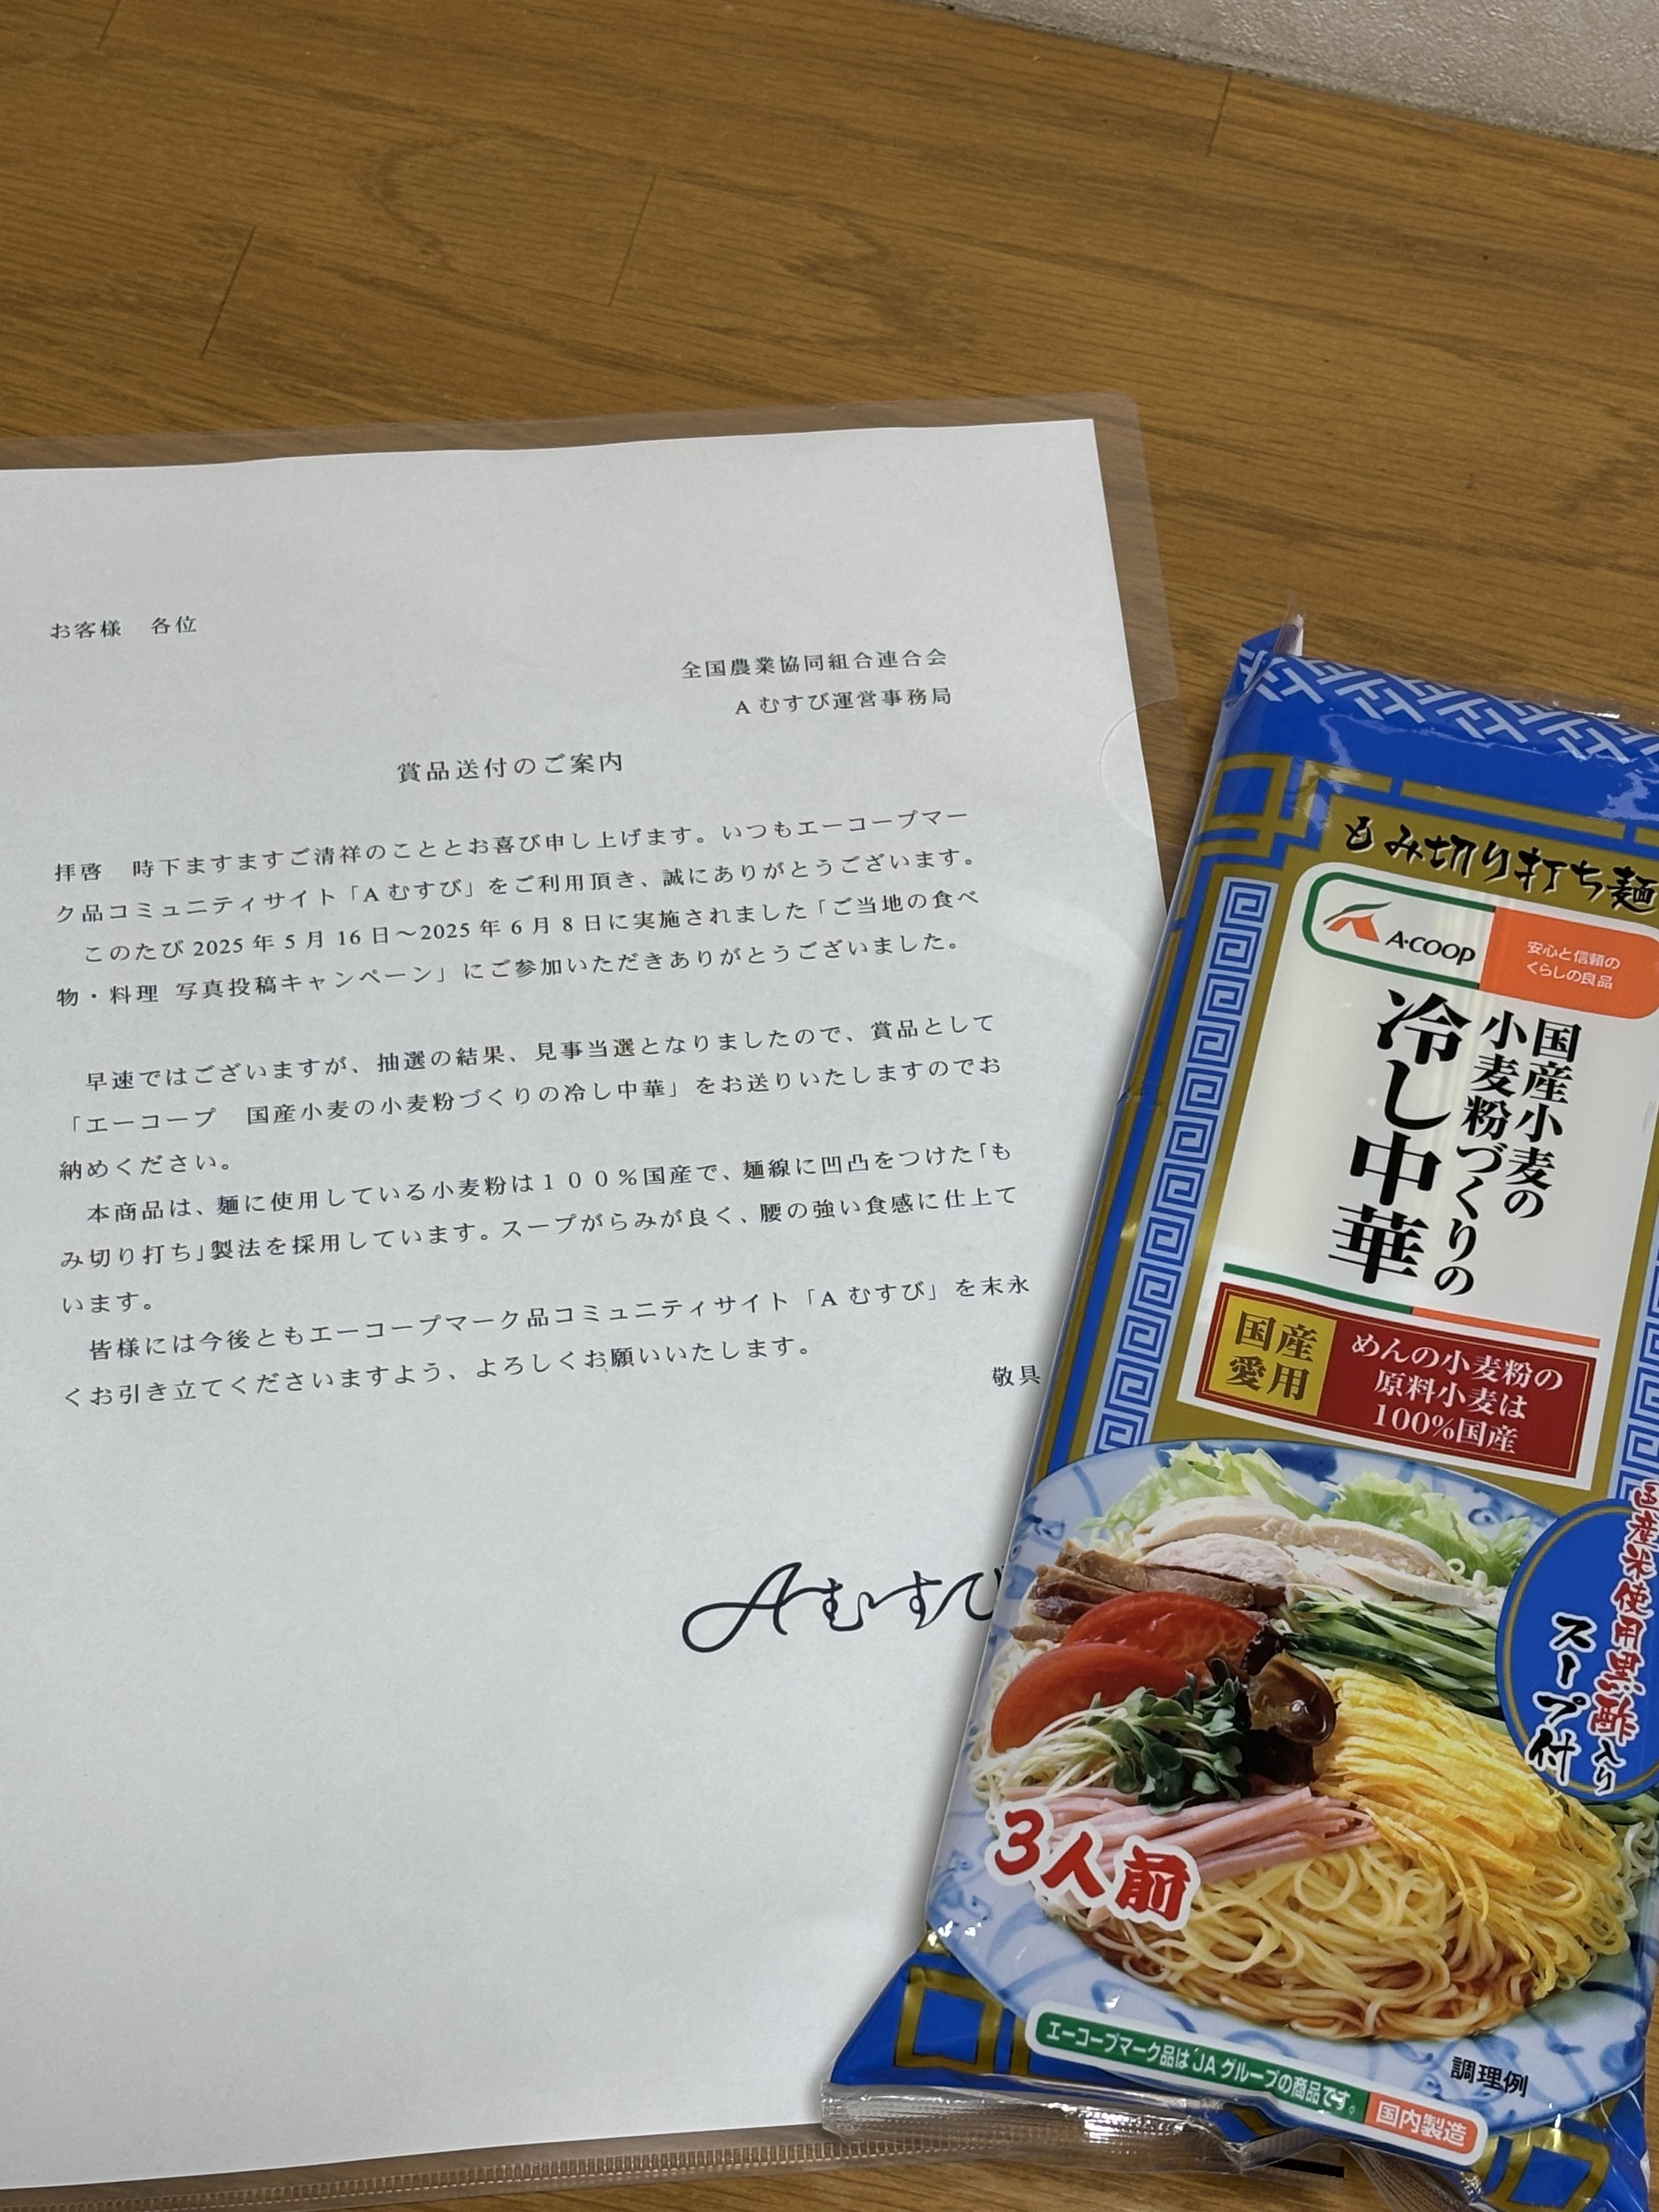 お客様　各位
全国農業協同組合連合会
A むすび運営事務局
賞品送付のご案内
拝啓　時下ますますご清祥のこととお喜び申し上げます。いつもエーコープマー
ク品コミュニティサイト「A むすび」をご利用頂き、誠にありがとうございます。
このたび 2025 年 5 月 16 日～2025 年 6 月 8 日に実施されました「ご当地の食べ
物・料理 写真投稿キャンペーン」にご参加いただきありがとうございました。
早速ではございますが、抽選の結果、見事当選となりましたので、賞品として
「エーコープ　国産小麦の小麦粉づくりの冷し中華」をお送りいたしますのでお
納めください。
本商品は、麺に使用している小麦粉は１００％国産で、麺線に凹凸をつけた「も
み切り打ち」製法を採用しています。スープがらみが良く、腰の強い食感に仕上て
います。
皆様には今後ともエーコープマーク品コミュニティサイト「A むすび」を末永
くお引き立てくださいますよう、よろしくお願いいたします。
敬具
Aむすび
もみ切り打ち麺
A·COOP
安心と信頼の
くらしの良品
国産小麦の
小麦粉づくりの
冷し中華
国産
愛用
めんの小麦粉の
原料小麦は
100%国産
国産米使用黒酢入り
スープ付
3人前
調理例
エーコープマーク品はJAグループの商品です。
国内製造